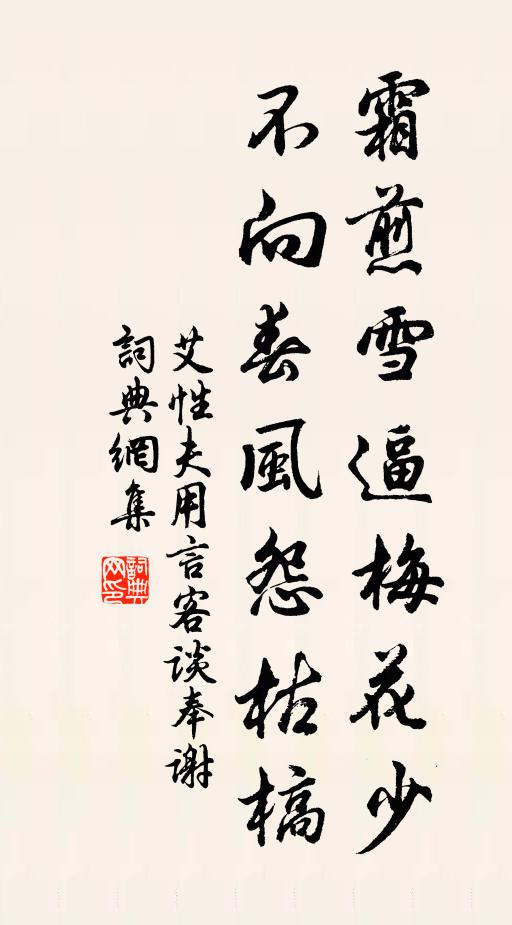 霜煎雪逼梅花少
不向春風怨枯槁
艾性夫用言客談奉謝
詞典網集
詞典网印